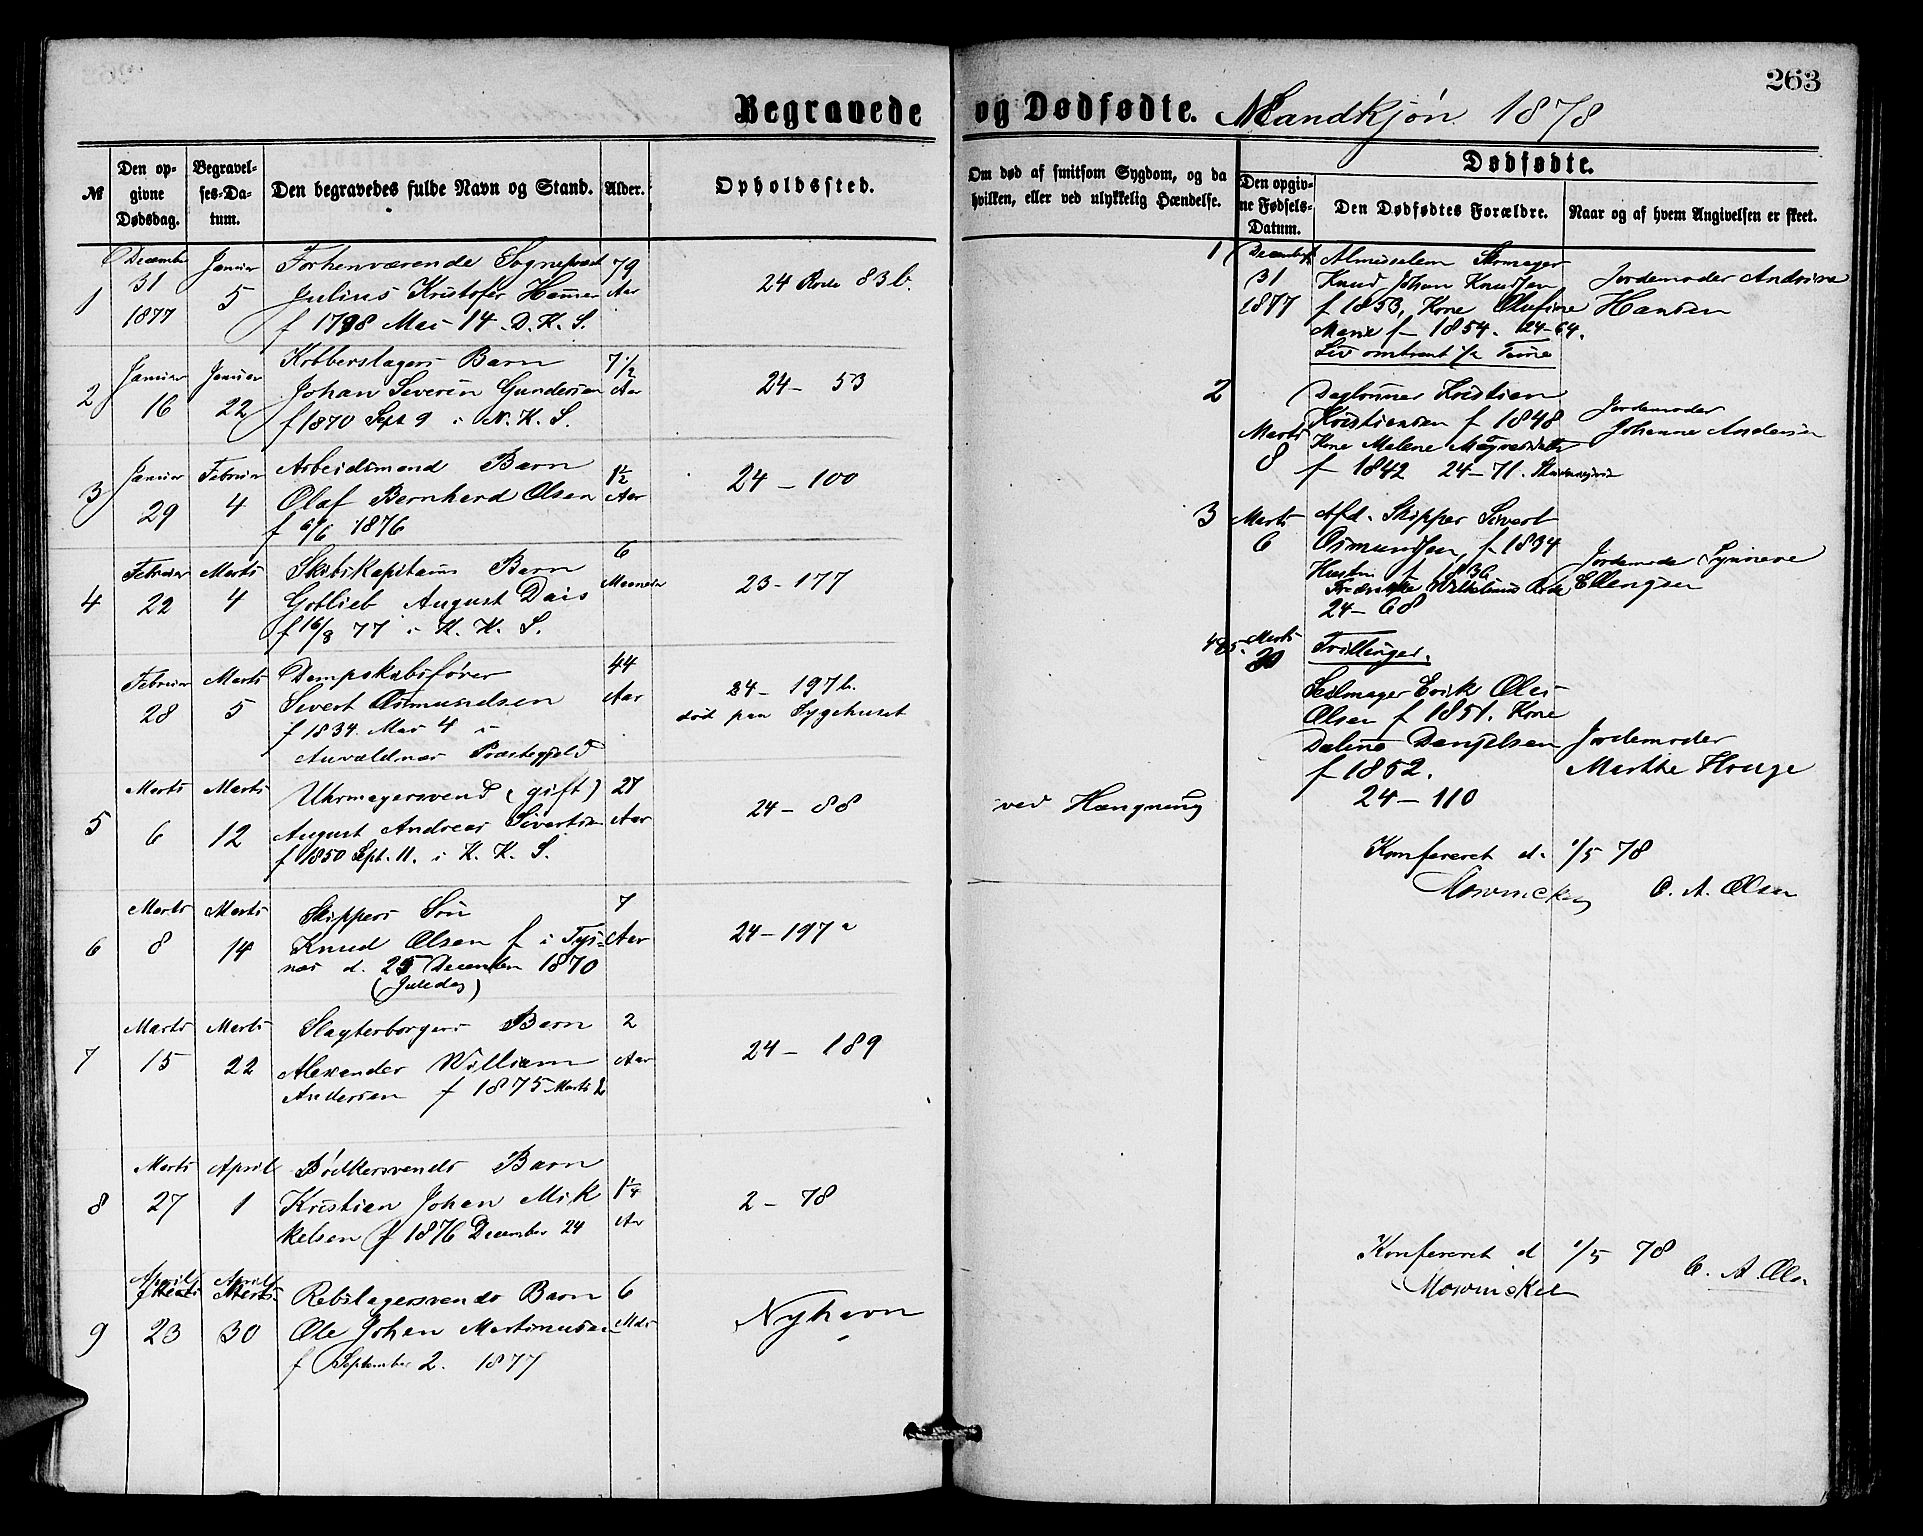 263
Begravede og Dødfødte. Mandkjøn 1878
№
Den opgivne Dødsdag.
Begravelses-Datum.
Den begravedes fulde Navn og Stand.
Alder.
Opholdssted.
Om død af smitsom Sygdom, og da hvilken, eller ved ulykkelig Hændelse.
Dødfødte.
Den opgivne Fødsels-Datum.
Den Dødfødtes Forældre.
Naar og af hvem Angivelsen er skeet.
1
December 31 1877
Januar 5
Forhenværende Sognepræst
Julius Kristofer Hammer
f 1798 Mai 14 D. K. S.
79 Aar
24 Rode 83 b.
2
Januar 16
Januar 22
Kobberslagers Barn
Johan Severin Gundersen
f 1870 Sept 9 i N. K. S.
7 1/2 Aar
24 - 53
3
Januar 29
Februar 4
Arbeidsmand Barn
Olaf Bernhard Olsen
f 6/6 1876
1 1/2 Aar
24 - 100
4
Februar 22
Marts 4
Skibskapitains Barn
Gotlieb August Dais
f 16/8 77 i K. K. S.
6 Maaneder
23 - 177
Februar 28
Marts 5
Dampskibsfører
Sivert Osmundsen
f 1834 Mar 4 i
Auvaldnæs Præstegjeld
44 Aar
24 - 197 b.
død paa Sygehuset
5
Marts 6
Marts 12
Uhrmagersvend (gift)
August Andreas Sivertsen
f 1850 Sept. 11. i K. K. S.
27 Aar
24 - 88
ved Hængning
6
Marts 8
Marts 14
Skippers Søn
Knud Olsen f i Tys-
næs d. 25 December 1870
(Juledag)
7 Aar
24 - 197 a
7
Marts 15
Marts 22
Slagterborgers Barn
Alexander William
Andersen f 1875 Marts 2
2 Aar
24 - 189
8
Marts 27
April 1
Bødkersvends Barn
Kristian Johan Mik
kelsen f 1876 December 24
1 1/4 Aar
2 - 78
9
April Marts 23
April Marts 30
Rebslagersvends Barn
Ole Johan Martinusen
f September 2. 1877
6 Mdr
Nyhavn
1
December 31 1877
Almisselem Skomager
Knud Johan Knudsen
f 1853, Kone Olufine
Marie f 1854. 24-64.
Liv omtrent 1/2 Time
Jordemoder Andrine
Hansen
2
Marts 8
Daglønner Kristian
Kristiansen f 1848
Kone Malene Magnesdatter
f 1842 24-71.
Jordemoder
Johanne Andersen
3
Marts 6
Afd. Skipper Sivert
Osmundsen, f. 1834
Hustru f 1836
Fredrikke Wilhelmine Rode
24 - 68
Jordemoder Synneve
Ellengsen
4 & 5
Marts 30
Trillinger.
Seilmager Erik Olei
Olsen f 1851. Kone
Daline Danjelsen
f 1852.
24 - 110
Jordemoder
Marthe Houge
Konfereret d. 1/5 78
Mowinckel C. A. Olsen
Konfereret d 1/5 78
Mowinckel C. A. Olsen